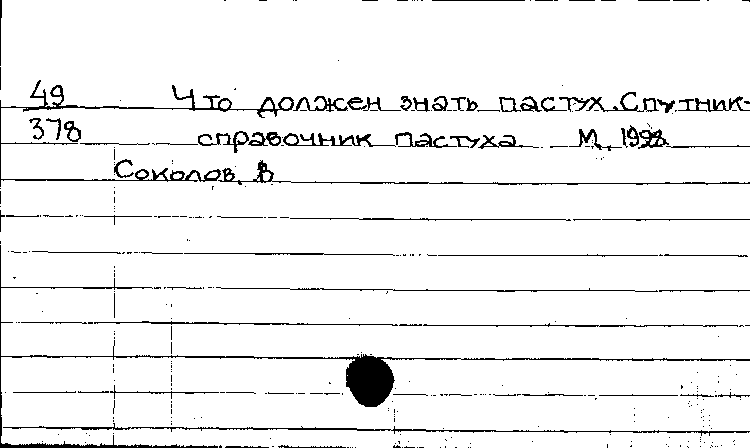 49 Что должен знать пастух. Спутник-
378 справочник пастуха. М,
Соколов. В